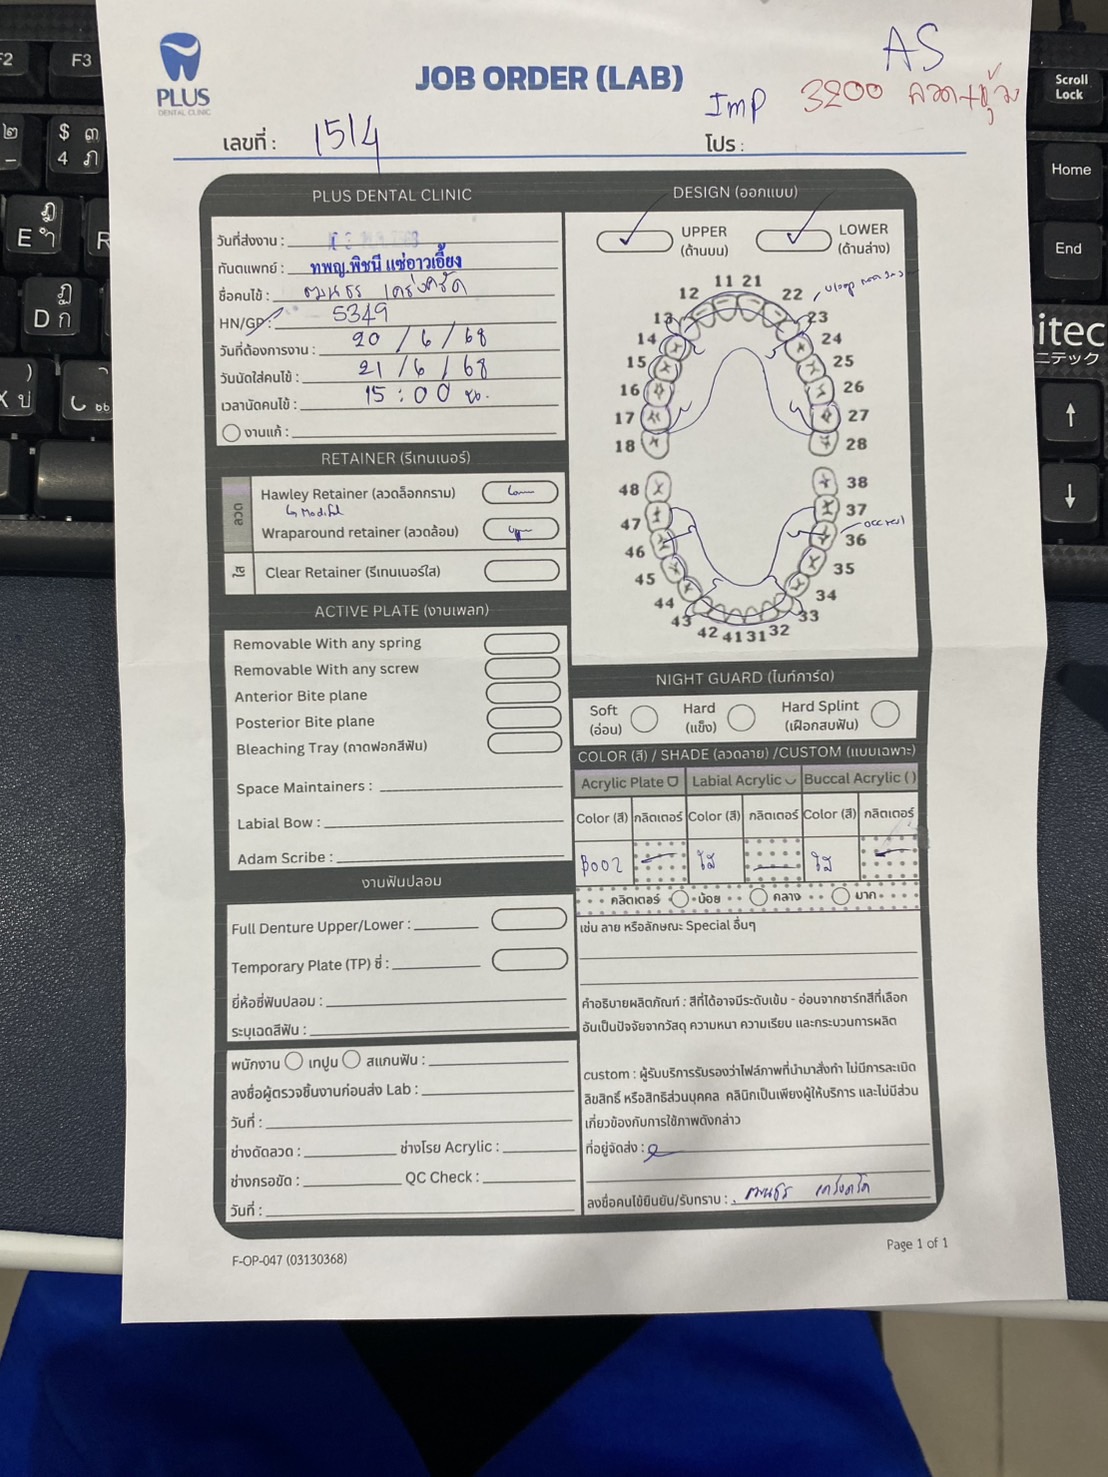 PLUS
DENTAL CLINIC
JOB ORDER (LAB)
AS
Imp 3200 ลวด+
เลขที่ : 1514
โปร :
PLUS DENTAL CLINIC
วันที่ส่งงาน :
ทันตแพทย์ : ทพญ.พิชนี แซ่อาวเอี้ยง
ชื่อคนไข้ :
HN/GP : 5349
วันที่ต้องการงาน : 20 / 6 / 68
วันนัดใส่คนไข้ : 21 / 6 / 68
เวลานัดคนไข้ : 15 : 00 น.
งานแก้ :
RETAINER (รีเทนเนอร์)
ลวด
Hawley Retainer (ลวดล็อกกราม)
Wraparound retainer (ลวดล้อม)
ใส
Clear Retainer (รีเทนเนอร์ใส)
ACTIVE PLATE (งานเพลท)
Removable With any spring
Removable With any screw
Anterior Bite plane
Posterior Bite plane
Bleaching Tray (ถาดฟอกสีฟัน)
Space Maintainers :
Labial Bow :
Adam Scribe :
งานฟันปลอม
Full Denture Upper/Lower :
Temporary Plate (TP) ซี่ :
ยี่ห้อซี่ฟันปลอม :
ระบุเฉดสีฟัน :
พนักงาน เทปูน สแกนฟัน :
ลงชื่อผู้ตรวจชิ้นงานก่อนส่ง Lab :
วันที่ :
ช่างดัดลวด : ช่างโรย Acrylic :
ช่างกรอขัด : QC Check :
วันที่ :
DESIGN (ออกแบบ)
UPPER
(ด้านบน)
LOWER
(ด้านล่าง)
11 21
12 22
13 23
14 24
15 25
16 26
17 27
18 28
48 38
47 37
46 36
45 35
44 34
43 33
42 41 31 32
NIGHT GUARD (ไนท์การ์ด)
Soft
(อ่อน)
Hard
(แข็ง)
Hard Splint
(เฝือกสบฟัน)
COLOR (สี) / SHADE (ลวดลาย) /CUSTOM (แบบเฉพาะ)
Acrylic Plate Labial Acrylic Buccal Acrylic ( )
Color (สี) กลิตเตอร์ Color (สี) กลิตเตอร์ Color (สี) กลิตเตอร์
B002 ใส ใส
กลิตเตอร์ น้อย กลาง มาก
เช่น ลาย หรือลักษณะ Special อื่นๆ
คำอธิบายผลิตภัณฑ์ : สีที่ได้อาจมีระดับเข้ม - อ่อนจากชาร์ทสีที่เลือก
อันเป็นปัจจัยจากวัสดุ ความหนา ความเรียบ และกระบวนการผลิต
custom : ผู้รับบริการรับรองว่าไฟล์ภาพที่นำมาสั่งทำ ไม่มีการละเมิด
ลิขสิทธิ์ หรือสิทธิส่วนบุคคล คลินิกเป็นเพียงผู้ให้บริการ และไม่มีส่วน
เกี่ยวข้องกับการใช้ภาพดังกล่าว
ที่อยู่จัดส่ง :
ลงชื่อคนไข้ยืนยัน/รับทราบ :
F-OP-047 (03130368)
Page 1 of 1
F2
F3
Scroll
Lock
Home
End